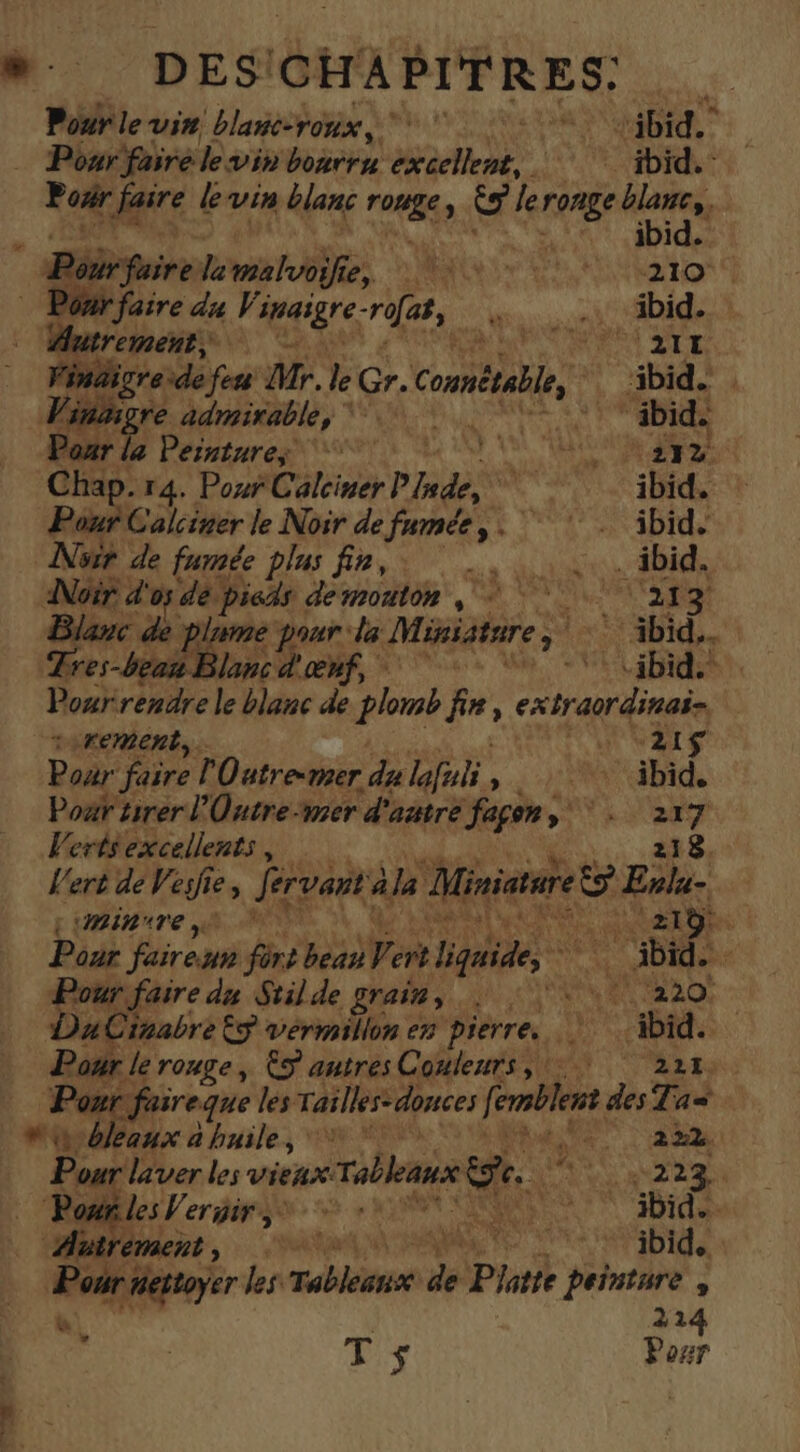 DES CHAPITRES.
Pour le vin blanc-roux, ibid.
Pour faire le vin bourru excellent, ibid.
Pour faire le vin blanc rouge, & le rouge blanc,
ibid.
Pour faire la malvoisie, 210
Pour faire du Vinaigre-rosat, ibid.
Autrement, 211
Vinaigre de feu Mr. le Gr. Connêtable, ibid.
Vinaigre admirable, ibid.
Pour la Peinture, 212
Chap. 14. Pour Calciner l'Inde, ibid.
Pour Calciner le Noir de fumée, ibid.
Noir de fumée plus fin, ibid.
Noir d'os de pieds de mouton, 213
Blanc de plume pour la Miniature, ibid.
Tres-beau Blanc d'œuf, ibid.
Pour rendre le blanc de plomb fin, extraordinai-
rement, 215
Pour faire l'Outre-mer du lasuli, ibid.
Pour tirer l'Outre-mer d'autre façon, 217
Verts excellents, 218
Vert de Vessie, servant à la Miniature & Enlu-
minure, 219
Pour faire un fort beau Vert liquide, ibid.
Pour faire du Stil de grain, 220
Du Cinabre & vermillon en pierre. ibid.
Pour le rouge, & autres Couleurs, 221
Pour faire que les Tailles-douces semblent des Ta-
bleaux à huile, 222
Pour laver les vieux Tableaux &c. 223
Pour les Vernir, ibid.
Autrement, ibid.
Pour nettoyer les Tableaux de Platte peinture,
224
T 5 Pour